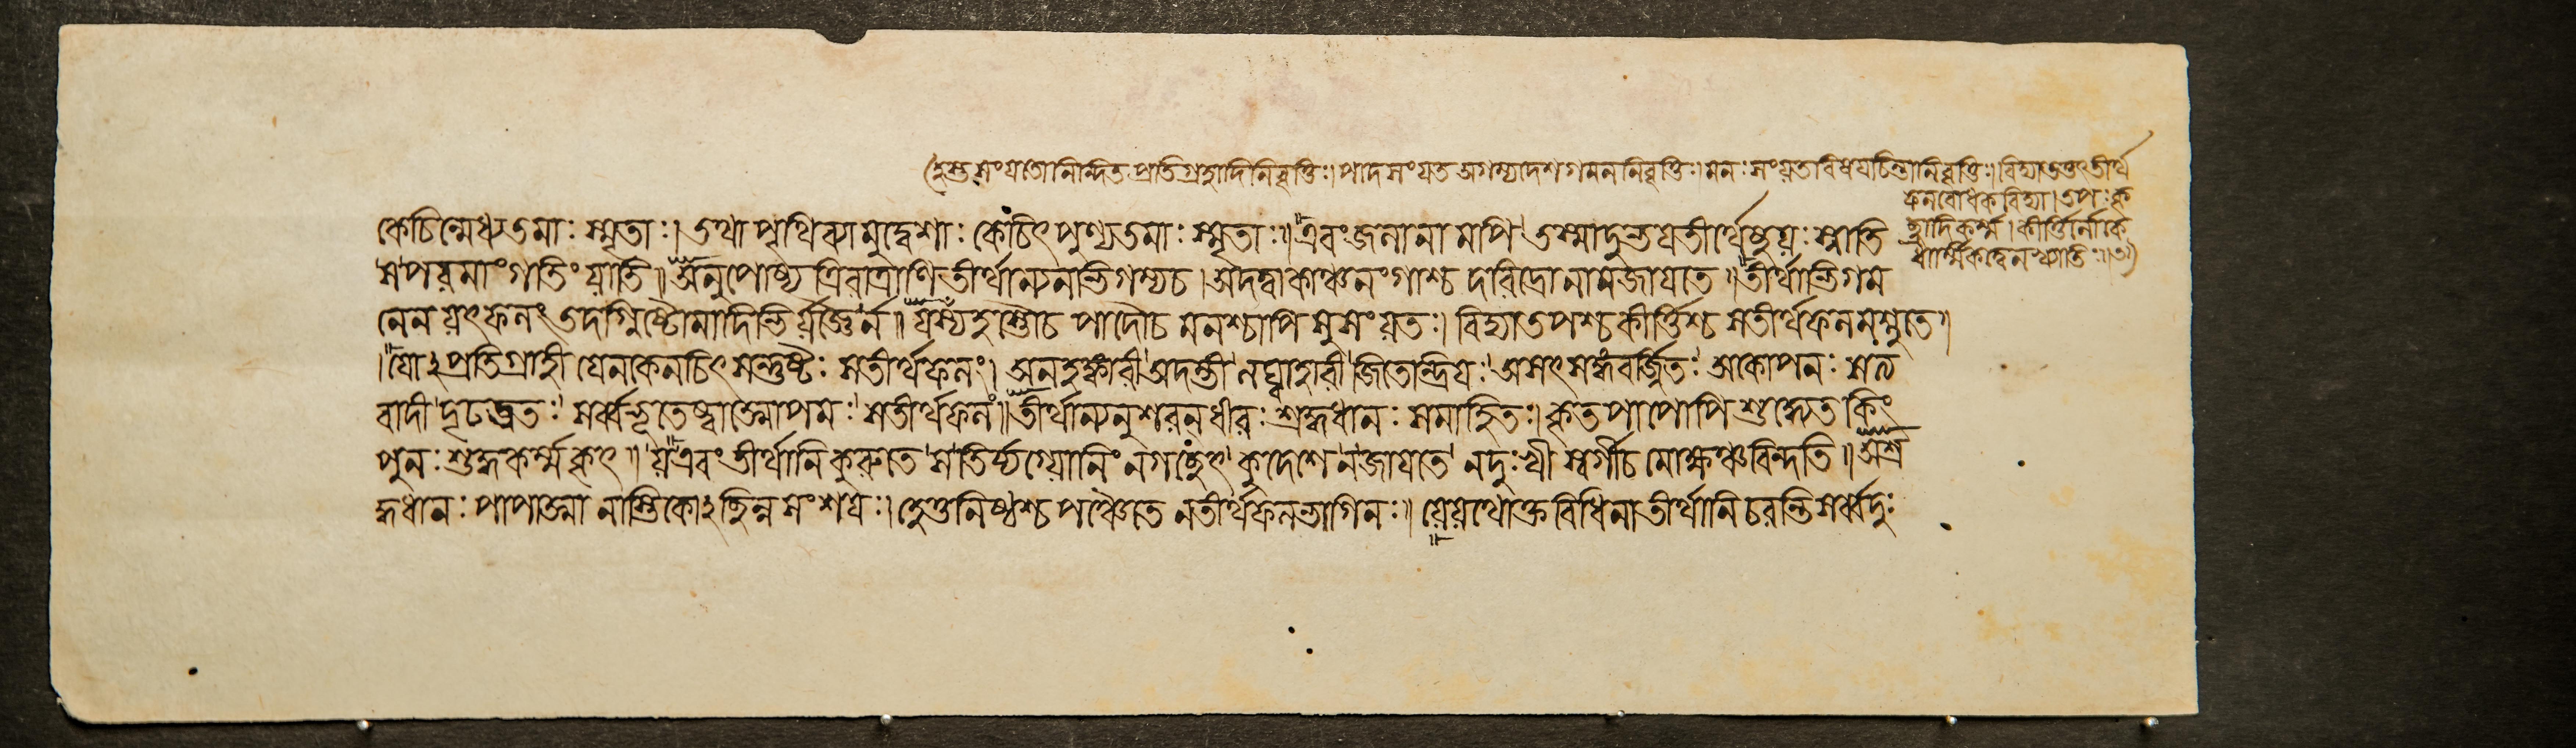 হস্ত সংযতো নিন্দিত প্রতিগ্রহাদিনিবৃত্তিঃ। পাদ সংযত অগম্যদেশ গমননিবৃত্তিঃ। মনঃ সংযতা বিষয়চিন্তানিবৃত্তিঃ। বিদ্যা তত্তৎ তীর্থ
ফলবোধক বিদ্যা। তপঃ কৃ
চ্ছ্রাদিকর্ম্ম। কীর্ত্তির্লোকে
ধার্ম্মিকত্বেন খ্যাতিঃ॥
কেচিন্মেধ্যতমাঃ স্মৃতাঃ। তথা পৃথিব্যামুদ্দেশাঃ কেচিৎ পুণ্যতমাঃ স্মৃতাঃ॥ এবং জলানামপি তস্মাদুভয়তীর্থেষু যঃ স্নাতি
স পরমাং গতিং যাতি॥ অনুপোষ্য ত্রিরাত্রাণি তীর্থান্যনভিগম্য চ। অদত্বা কাঞ্চনং গাশ্চ দরিদ্রো নাম জায়তে॥ তীর্থাভিগম
নেন যৎ ফলং তদগ্নিষ্টোমাদিভির্যজ্ঞৈর্ন॥ যস্য হস্তৌ চ পাদৌ চ মনশ্চাপি সুসংযত। বিদ্যা তপশ্চ কীর্ত্তিশ্চ স তীর্থফলমশ্নুতে॥
যোঽপ্রতিগ্রাহী যেন কেনচিৎ সন্তুষ্টঃ স তীর্থফলং। অনহঙ্কারী অদম্ভী লঘ্বাহারী জিতেন্দ্রিয়ঃ অসৎসঙ্গবর্জ্জিতঃ অকোপনঃ সত্য
বাদী দৃঢব্রতঃ সর্ব্বভূতেষ্বাত্মোপমঃ স তীর্থফলং॥ তীর্থান্যনুশরন্ ধীরঃ শ্রদ্দধানঃ সমাহিতঃ। কৃতপাপোপি শুদ্ধ্যেত কিং
পুনঃ শুদ্ধকর্ম্মকৃৎ॥ য এবং তীর্থানি কুরুতে স তির্য্যগ্যোনিং ন গচ্ছেৎ কুদেশে ন জায়তে ন দুঃখী স্বর্গী চ মোক্ষঞ্চ বিন্দতি॥ অশ্র
দ্দধানঃ পাপাত্মা নাস্তিকোঽছিন্নসংশয়ঃ। হেতুনিষ্ঠশ্চ পঞ্চৈতে ন তীর্থফলভাগিনঃ॥ যে যথোক্তবিধিনা তীর্থানি চরন্তি সর্ব্বদুঃ